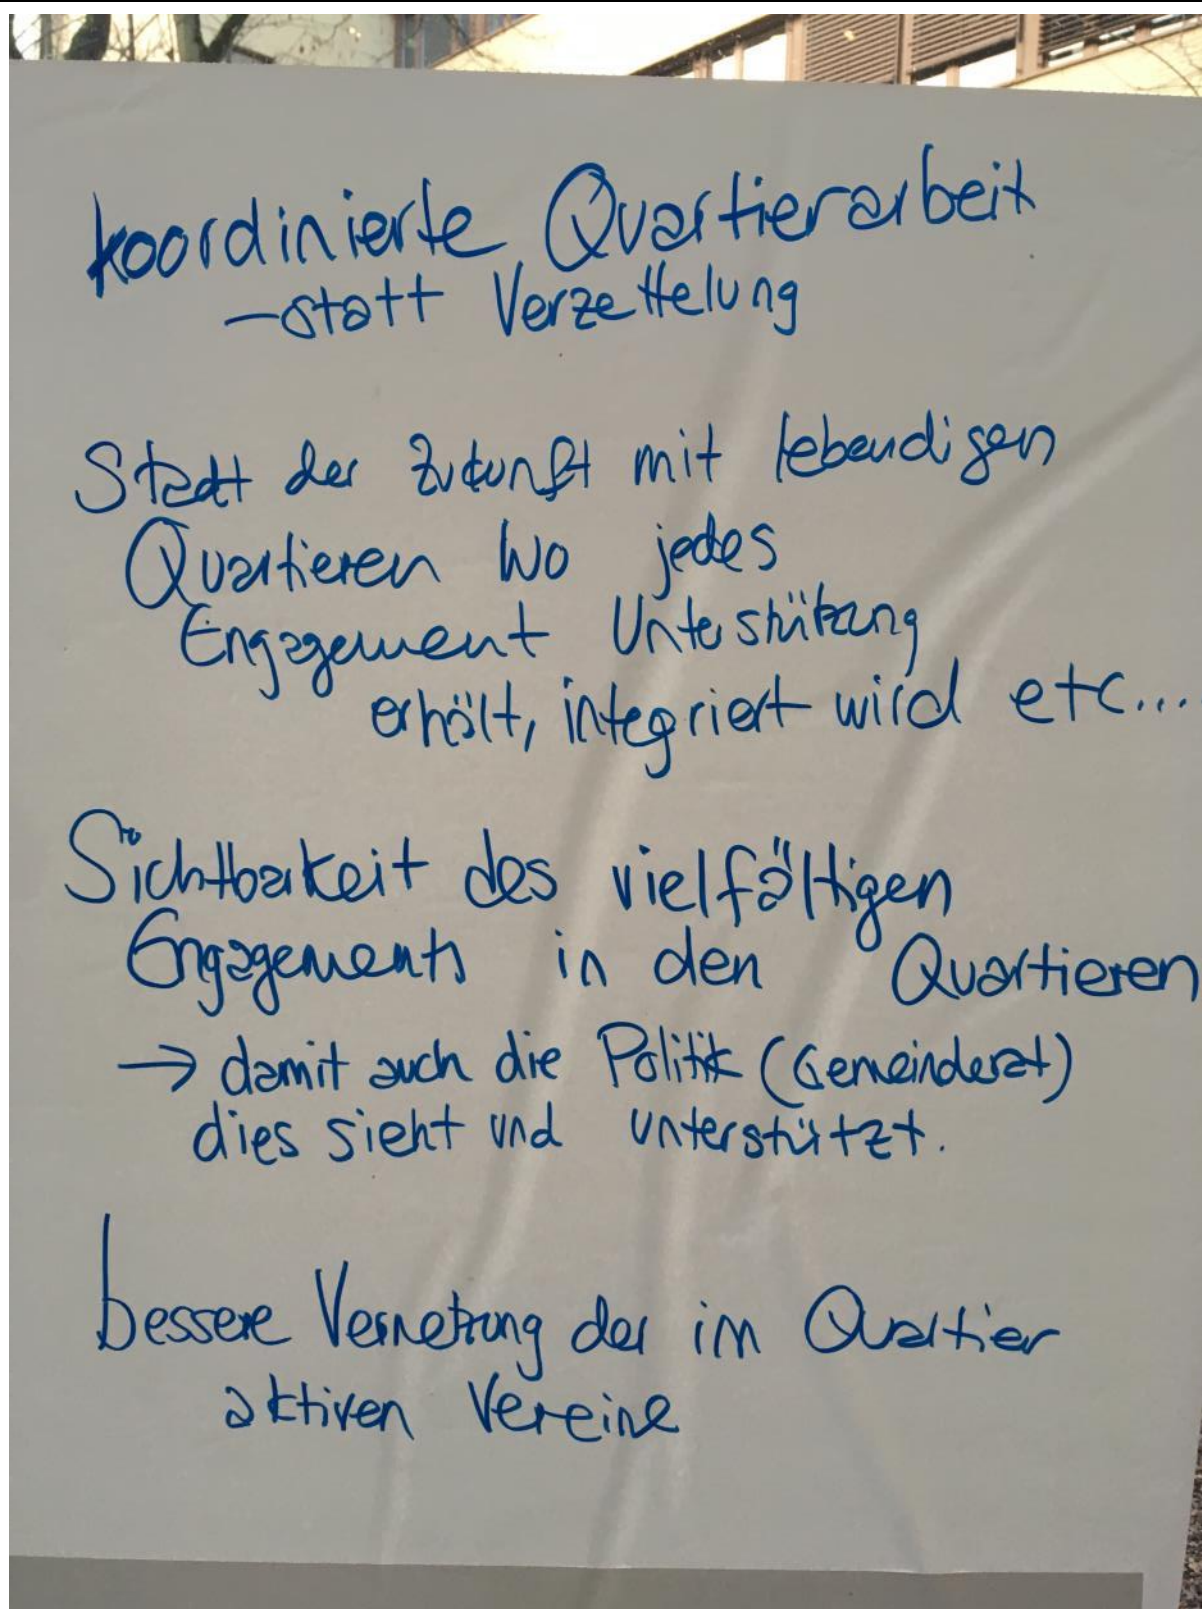 koordinierte Quartierarbeit
– statt Verzettelung
Stadt der Zukunft mit lebendigen
Quartieren wo jedes
Engagement Unterstützung
erhält, integriert wird etc...
Sichtbarkeit des vielfältigen
Engagements in den Quartieren
→ damit auch die Politik (Gemeinderat)
dies sieht und unterstützt.
bessere Vernetzung der im Quartier
aktiven Vereine